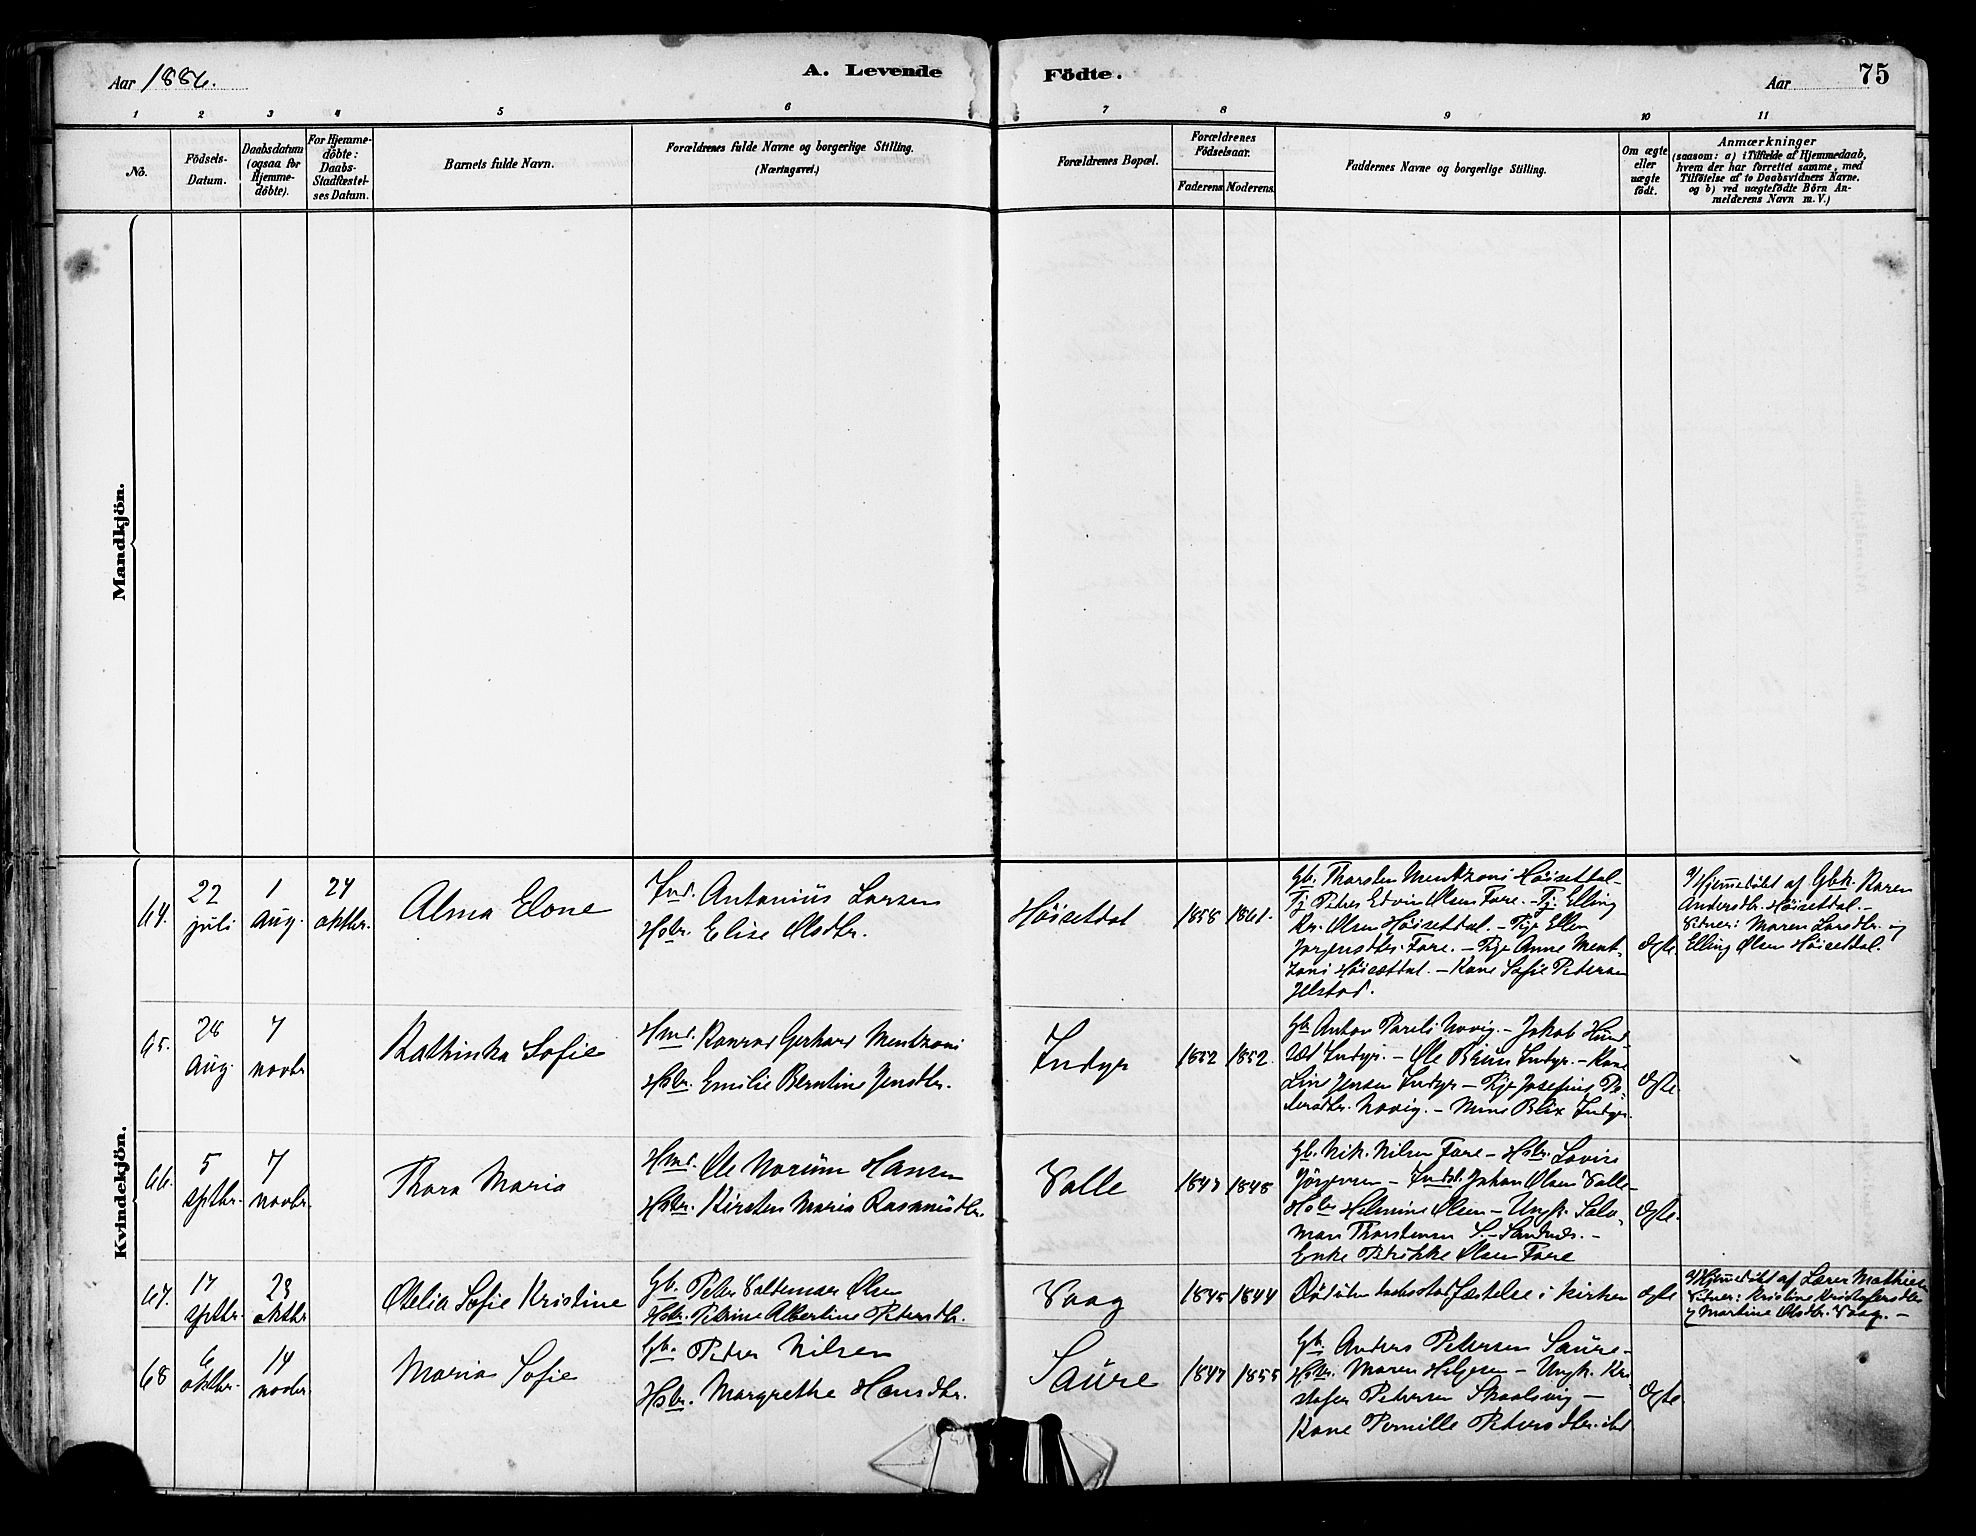 Aar 1886.
A. Levende
Födte.
Aar
75
1
2
3
4
5
6
7
8
9
10
11
No.
Födsels-
Datum.
Daabsdatum
(ogsaa for
Hjemme-
döbte).
For Hjemme-
döbte:
Daabs-
Stadfæstel-
ses Datum.
Barnets fulde Navn.
Forældrenes fulde Navne og borgerlige Stilling.
(Næringsvei.)
Forældrenes Bopæl.
Forældrenes
Födselsaar.
Faderens
Moderens.
Faddernes Navne og borgerlige Stilling.
Om ægte
eller
uægte
födt.
Anmærkninger
(saasom: a) i Tilfælde af Hjemmedaab,
hvem der har forrettet samme, med
Tilföielse af to Daabsvidners Navne,
og b) ved uægtefödte Börn An-
melderens Navn m. V.)
Mandkjön.
Kvindekjön.
64.
22
juli
1
Aug.
24
oktbr.
Alma Elone
Ind. Antonius Larsen
Hsbr. Elise Olsdtr.
Höisetdal
1858
1861.
Gb. Thorsten Mentzoni Höisetdal-
Tj. Petrus Edvin Olsen Fore. - Tj. Elling
Kr. Olsen Höisetdal. - Pige Ellen
Jörgensdtr. Fore. - Pige Anne Ment-
zoni Höisetdal. - Kone Sofie Petersen
Jelstad.
ægte.
a/ Hjemmedöbt af Gbk. Karen
Andersdtr. Höisetdal. -
Vidner: Maren Larsdtr. og
Elling Olsen Höisetdal.
65.
28
Aug.
7
novbr
Kathinka Sofie
Hmd. Konrad Gerhard Mentzoni
Hsbr. Emilie Berntine Jensdtr.
Indyr
1852
1852.
Gb Anton Pareli Novig. - Jakob Hund-
Indyr. - Ole Bruun Indyr. - Kone
Line Jensen Indyr - Pige Josefine Pe-
dersdtr. Novig. - Mine Blix Indyr.
ægte.
66.
5
sptbr.
7
novbr.
Thora Maria
Hmd. Ole Norum Hansen
Hsbr. Kirsten Maria Rasmusdtr.
Valle
1847
1848
Gb. Nik. Nilsen Fore - Hsbr. Lovise
Jörgensen - Indst. Johan Olsen Valle-
Hsbr Helmine Olsen - Ungk. Salo-
mon Thorstensen S.-Sandnes. -
Enke Birikke Olsen Fore
ægte.
67.
17
sptbr.
23
oktbr
Otelia Sofie Kristine
Gb. Peter Valdemar Olsen
Hsbr. Petrine Albertine Petersdtr.
Vaag
1845
1844
Död uden daabsstadfæstelse i kirken
ægte
a/ Hjemmedöbt af Lærer Mathisen
Vidner: Kristine Kristofersdtr
og Martine Olsdtr. Vaag. -
68
6
oktbr.
14
novbr.
Maria Sofie
Gb. Peder Nilsen
Hsbr. Margrethe Hansdtr.
Saure
1847
1855
Gb. Anders Petersen Saure-
Hsbr. Maren Helgesen - Ungk. Kri-
stofer Petersen Skaalsvig -
Kone Pernille Petersdtr. ibd
ægte.